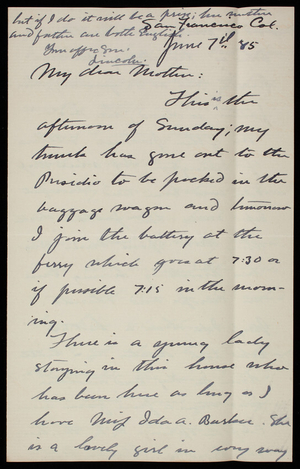 but if I do it will be a prize; her mother
and father are both English.
Your affec son.
Lincoln.
San Francisco Cal.
June 7th '85
My dear Mother:
This is the
afternoon of Sunday; my
trunk has gone out to the
Presidio to be packed in the
baggage wagon and tomorrow
I join the battery at the
ferry which goes at 7:30 or
if possible 7:15 in the morn-
ing.
There is a young lady
staying in this house who
has been here as long as I
have Miss Ida A. Barber. She
is a lovely girl in every way